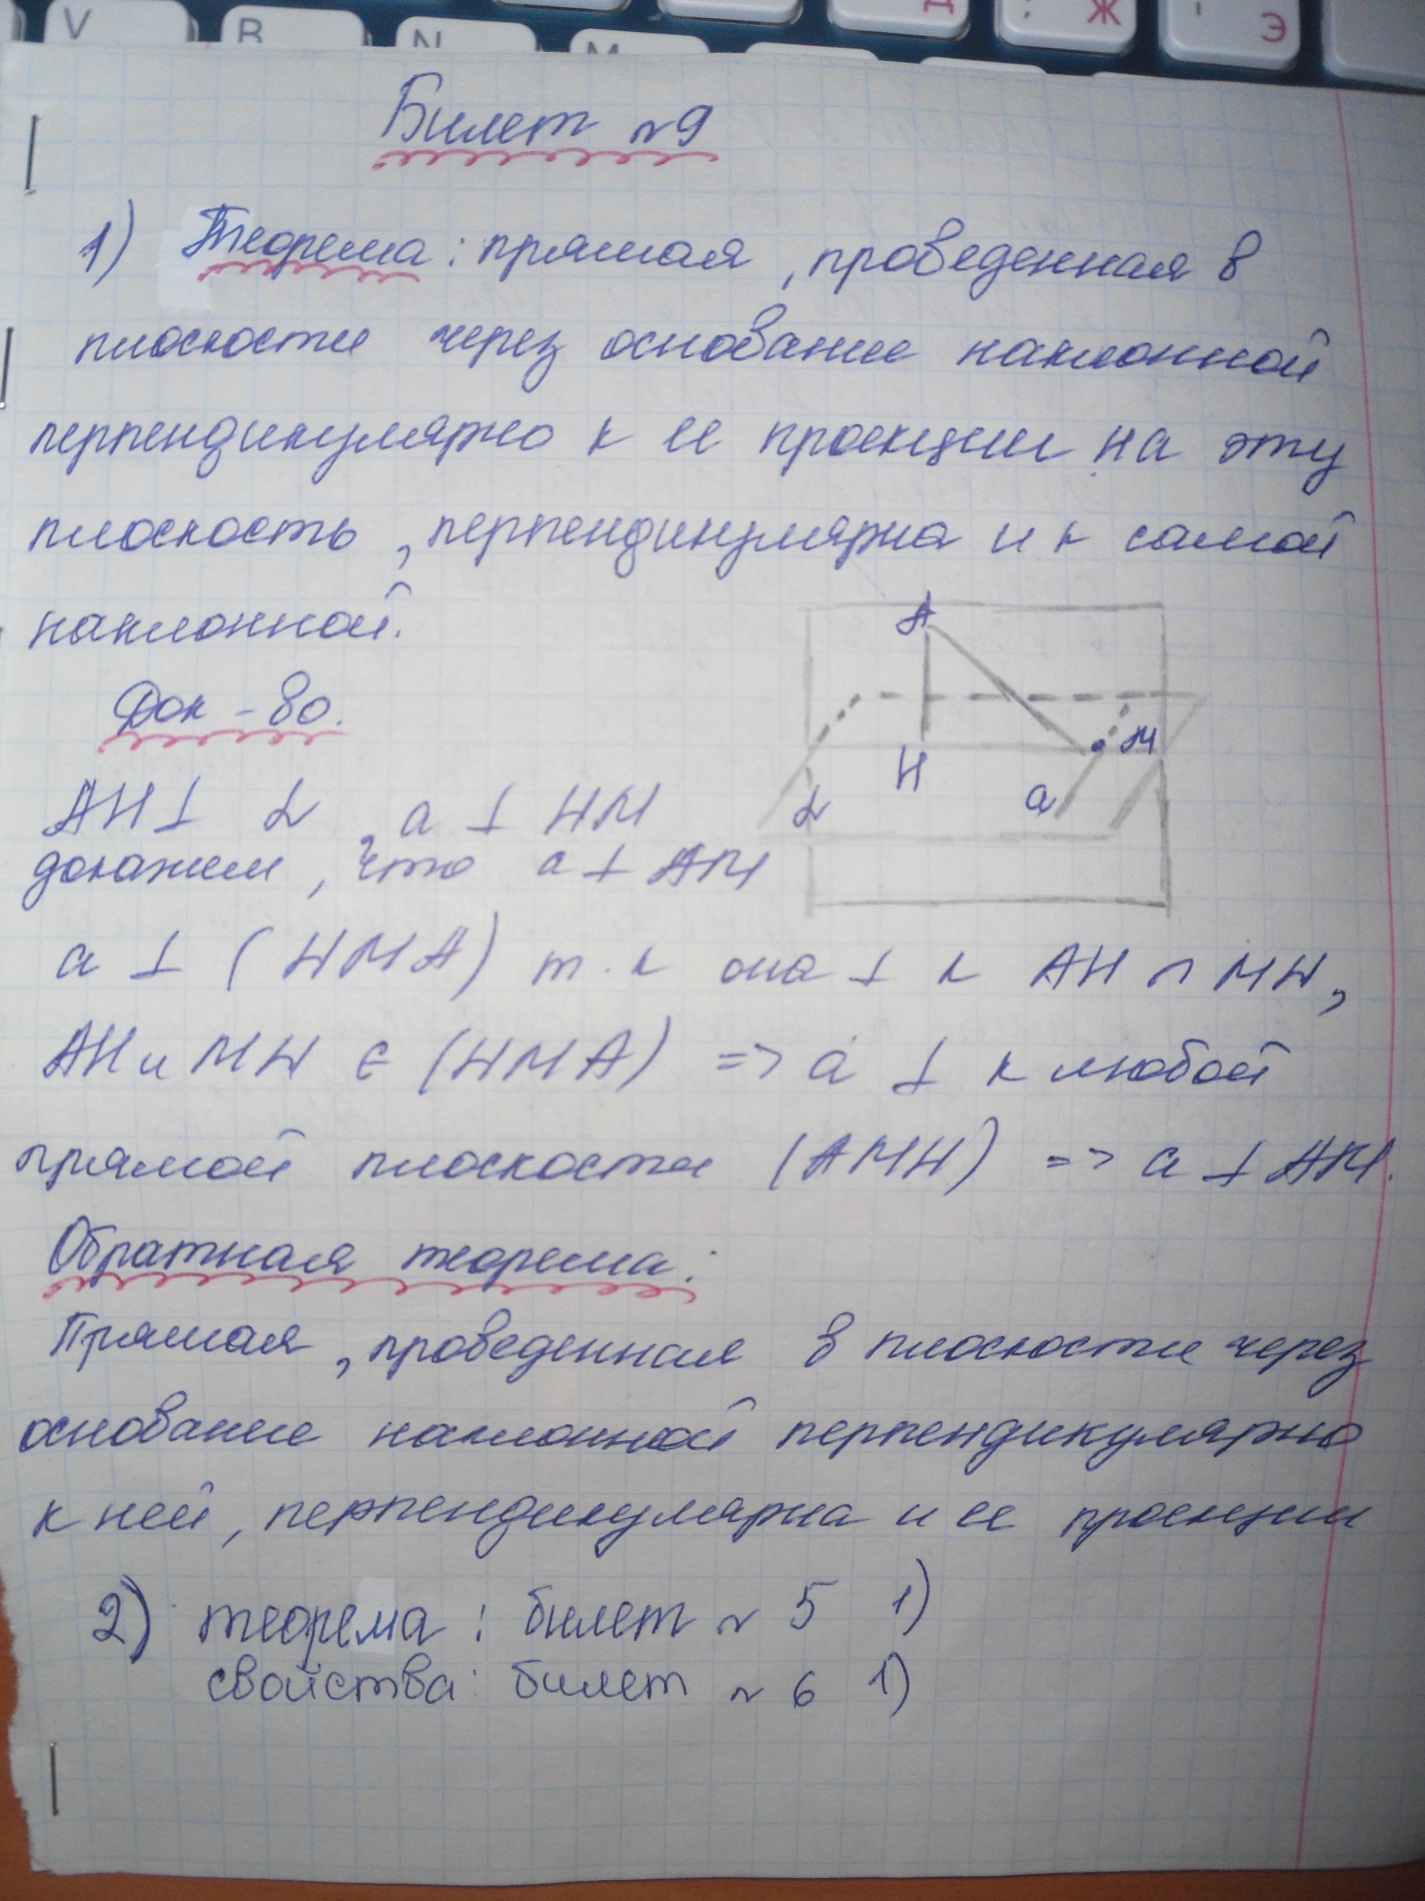 V B N M Д Ж Э
Билет №9
1) Теорема: прямая, проведенная в
плоскости через основание наклонной
перпендикулярно к ее проекции на эту
плоскость, перпендикулярна и к самой
наклонной.
Док-во.
A
H
M
a
α
AH ⊥ α, a ⊥ HM
докажем, что a ⊥ AM
a ⊥ (HMA) т.к она ⊥ к AH и MH,
AH и MH ∈ (HMA) => a ⊥ к любой
прямой плоскости (AMH) => a ⊥ AM.
Обратная теорема:
Прямая, проведенная в плоскости через
основание наклонной перпендикулярно
к ней, перпендикулярна и ее проекции
2) теорема: билет № 5 1)
свойства: билет № 6 1)